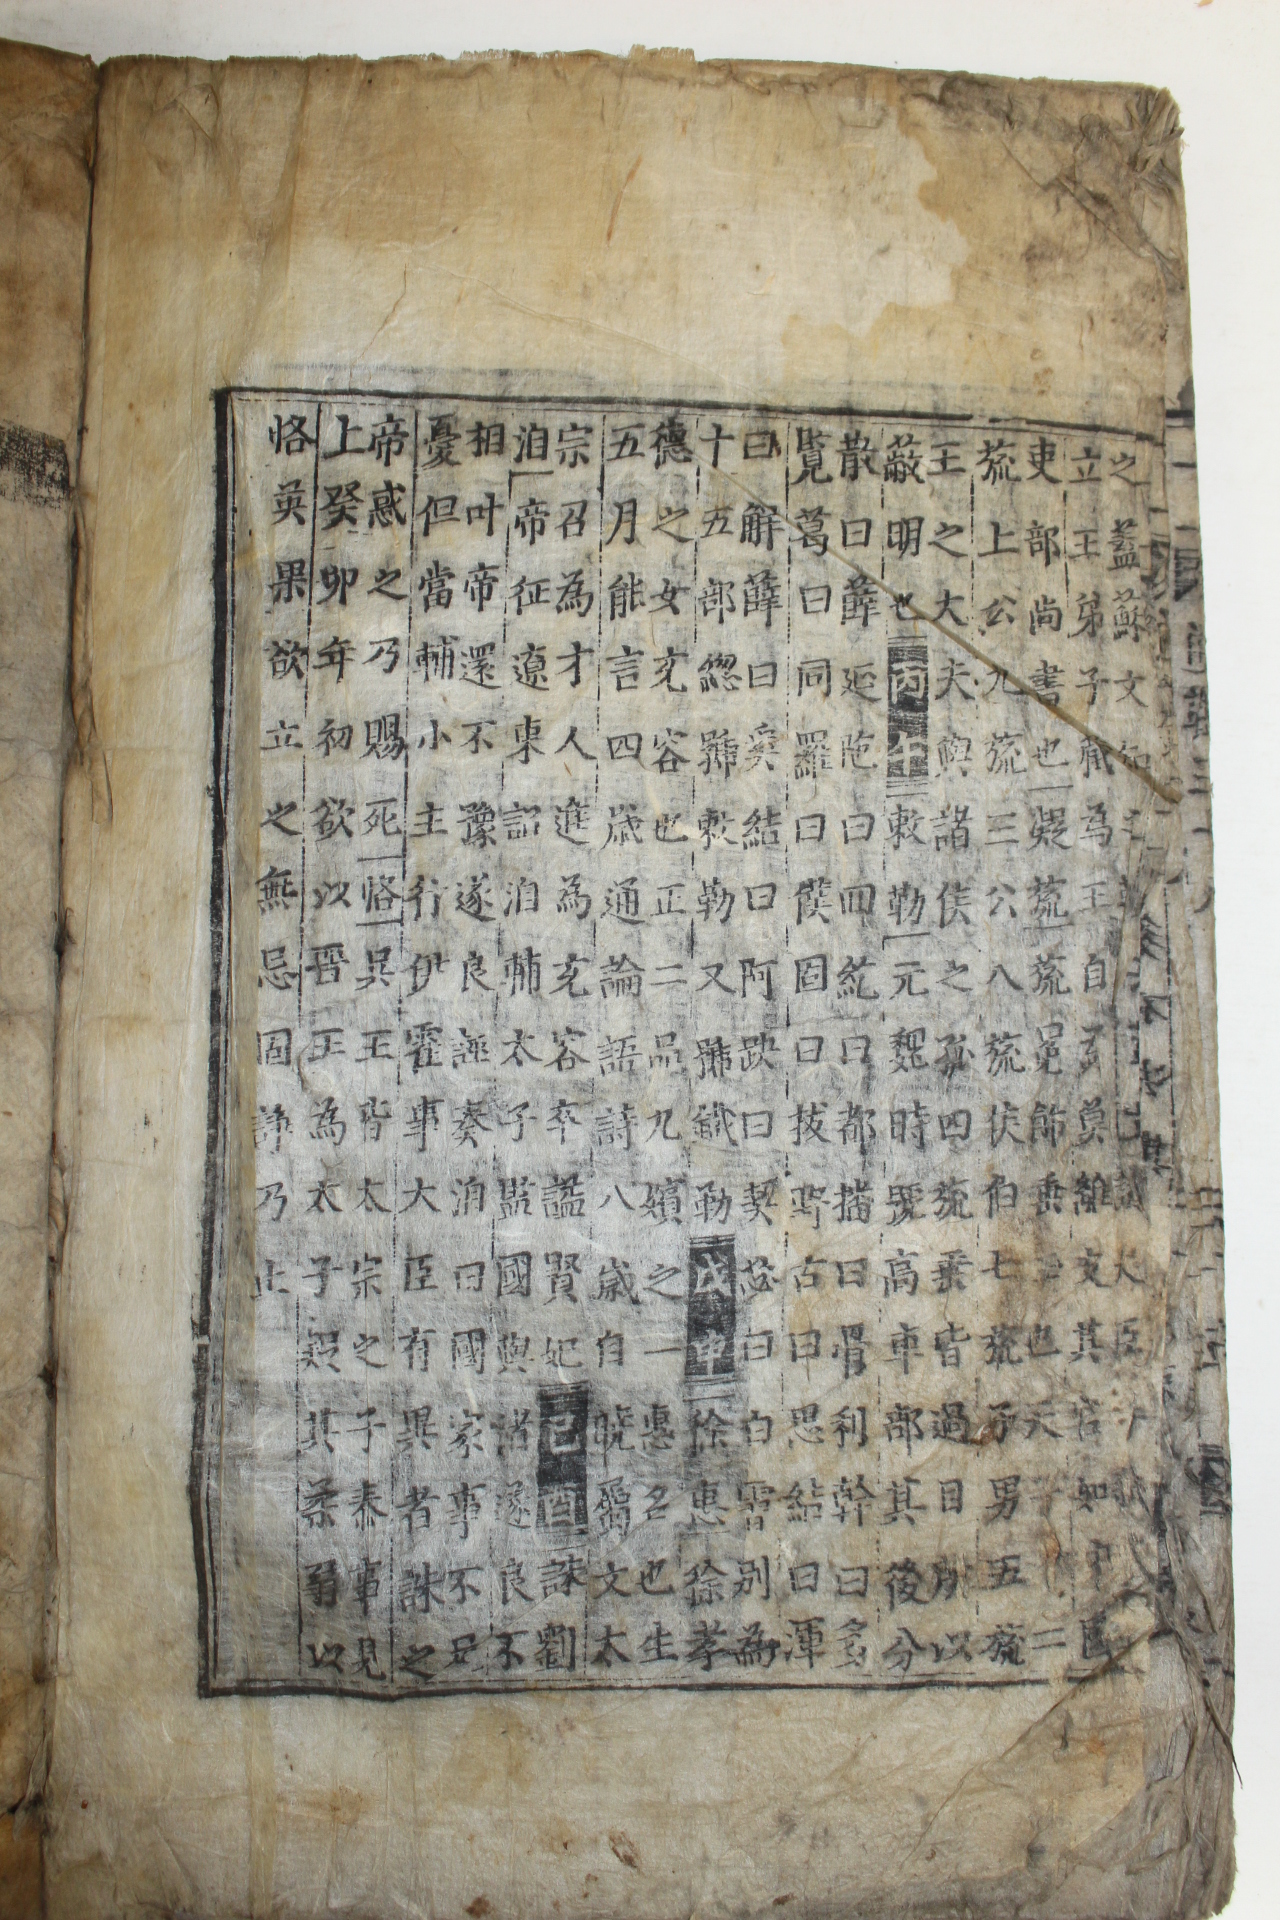 之蓋蘇文知之
立王弟子臧為王自立莫離支其官如中國
吏部尚書也疑旒旒冕飾垂玉也天子十二
旒上公九旒三公八旒侯伯七旒子男五旒
王之大夫與諸侯之孤四旒垂皆過目所以
蔽明也丙午敕勒元魏時號高車部其後分
散曰薛延陀曰回紇曰都播曰骨利幹曰多
覽葛曰同羅曰僕固曰拔野古曰思結曰渾
曰解薛曰奚結曰阿跌曰契苾曰白霫別為
十五部緫號敕勒又號鐵勒戊申徐惠徐孝
德之女充容也正二品九嬪之一惠名也生
五月能言四歲通論語詩八歲自曉屬文太
宗召為才人進為充容卒謚賢妃己酉誅劉
洎帝征遼東詔洎輔太子監國與渚遂良不
相叶帝還不豫遂良誣奏洎曰國家事不足
憂但當輔小主行伊霍事大臣有異者誅之
帝惑之乃賜死恪吳王皆太宗之子泰事見
上癸卯年初欲以晉王為太子疑其柔弱以
恪英果欲立之無忌固諍乃止